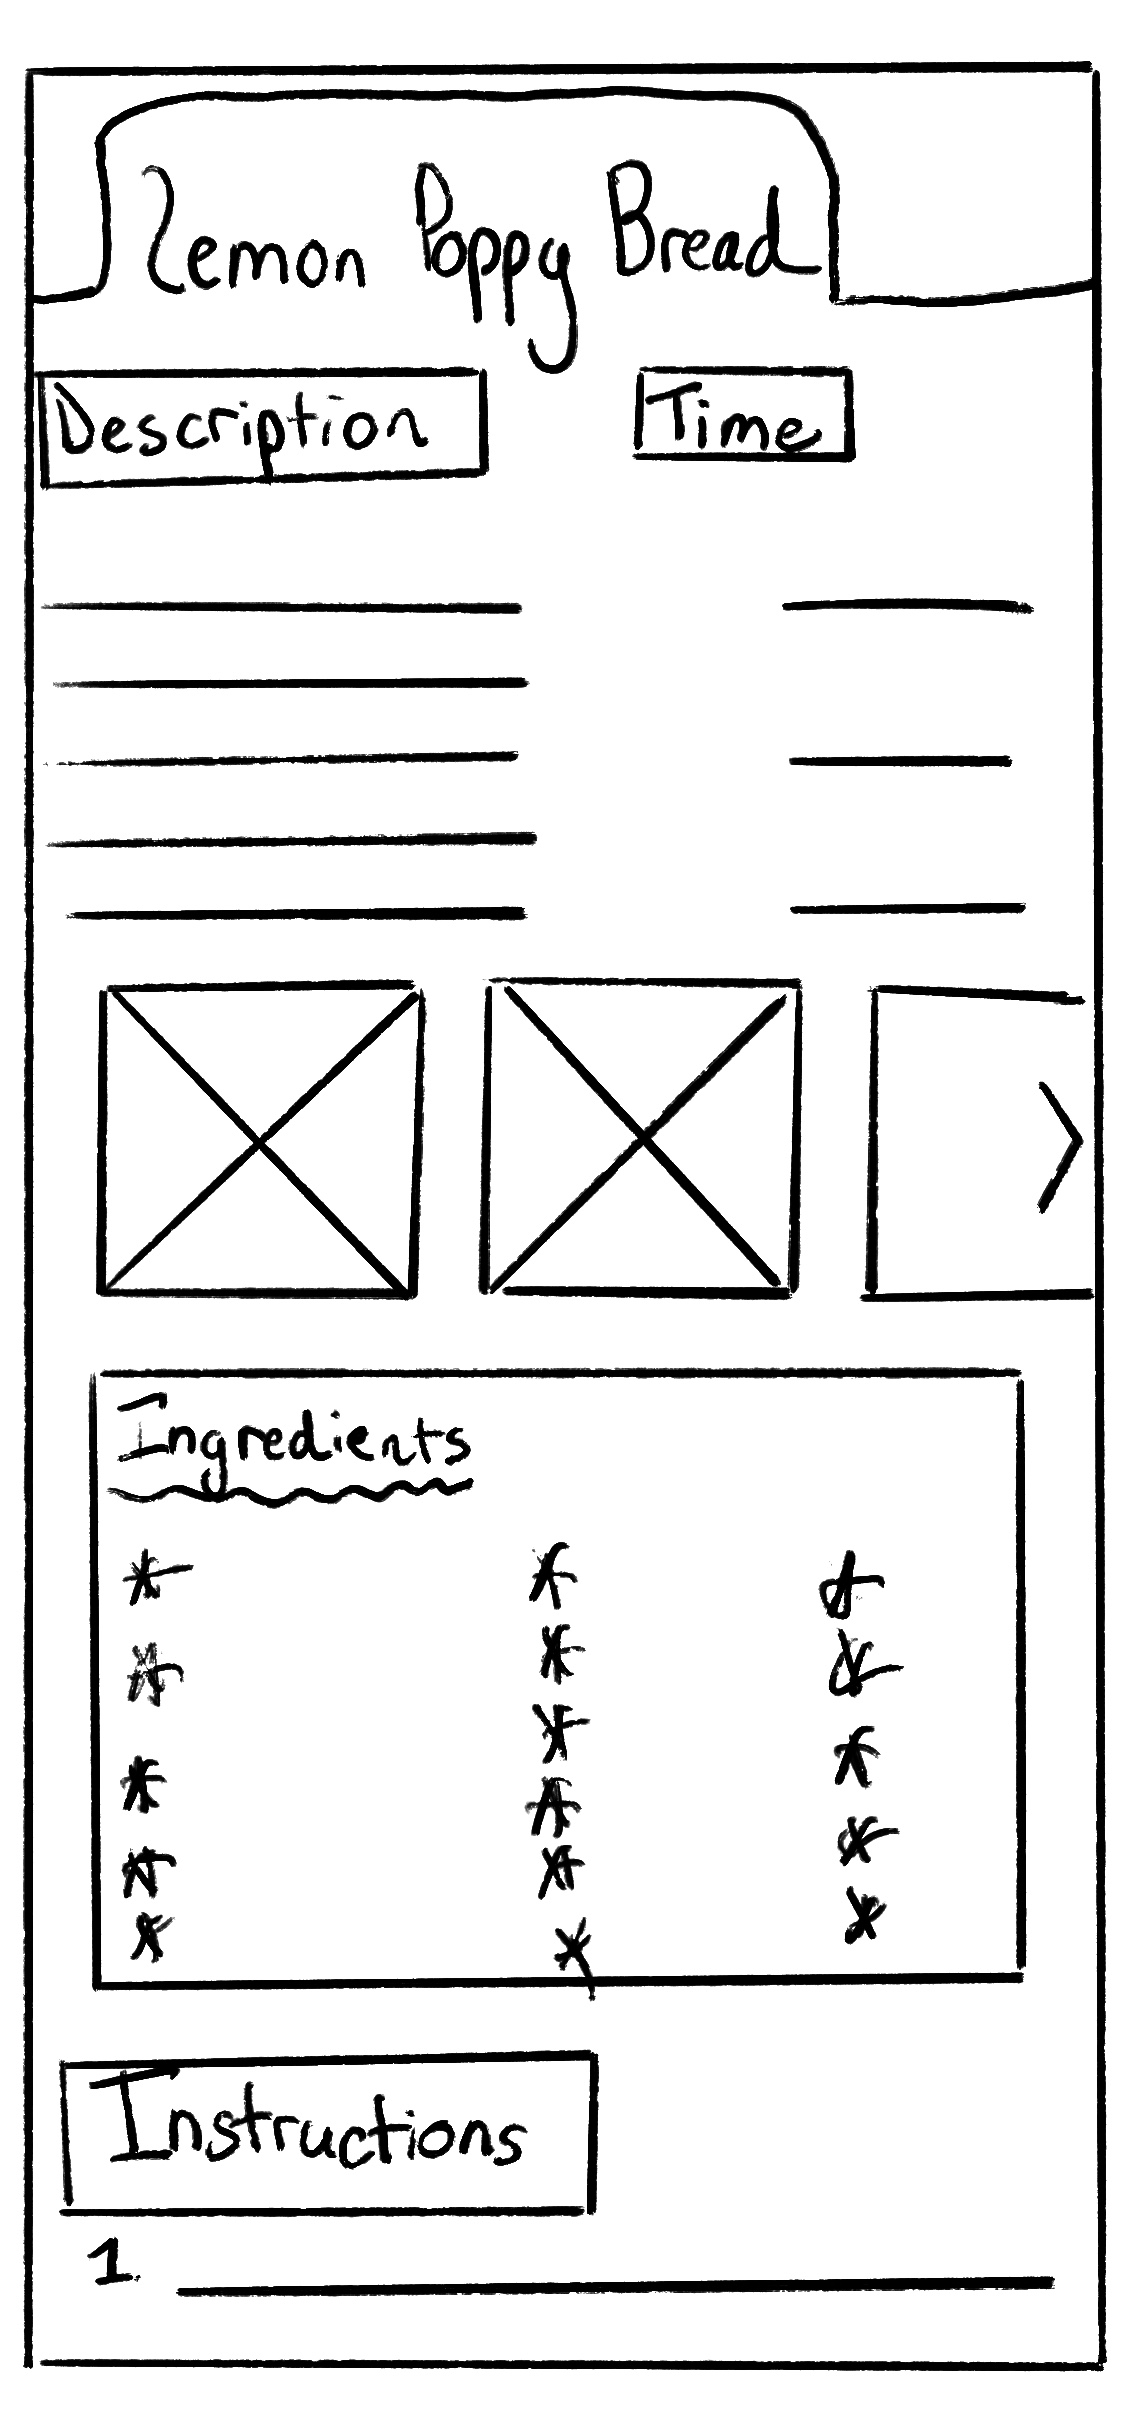 Lemon Poppy Bread
Description Time
Ingredients
Instructions
1.